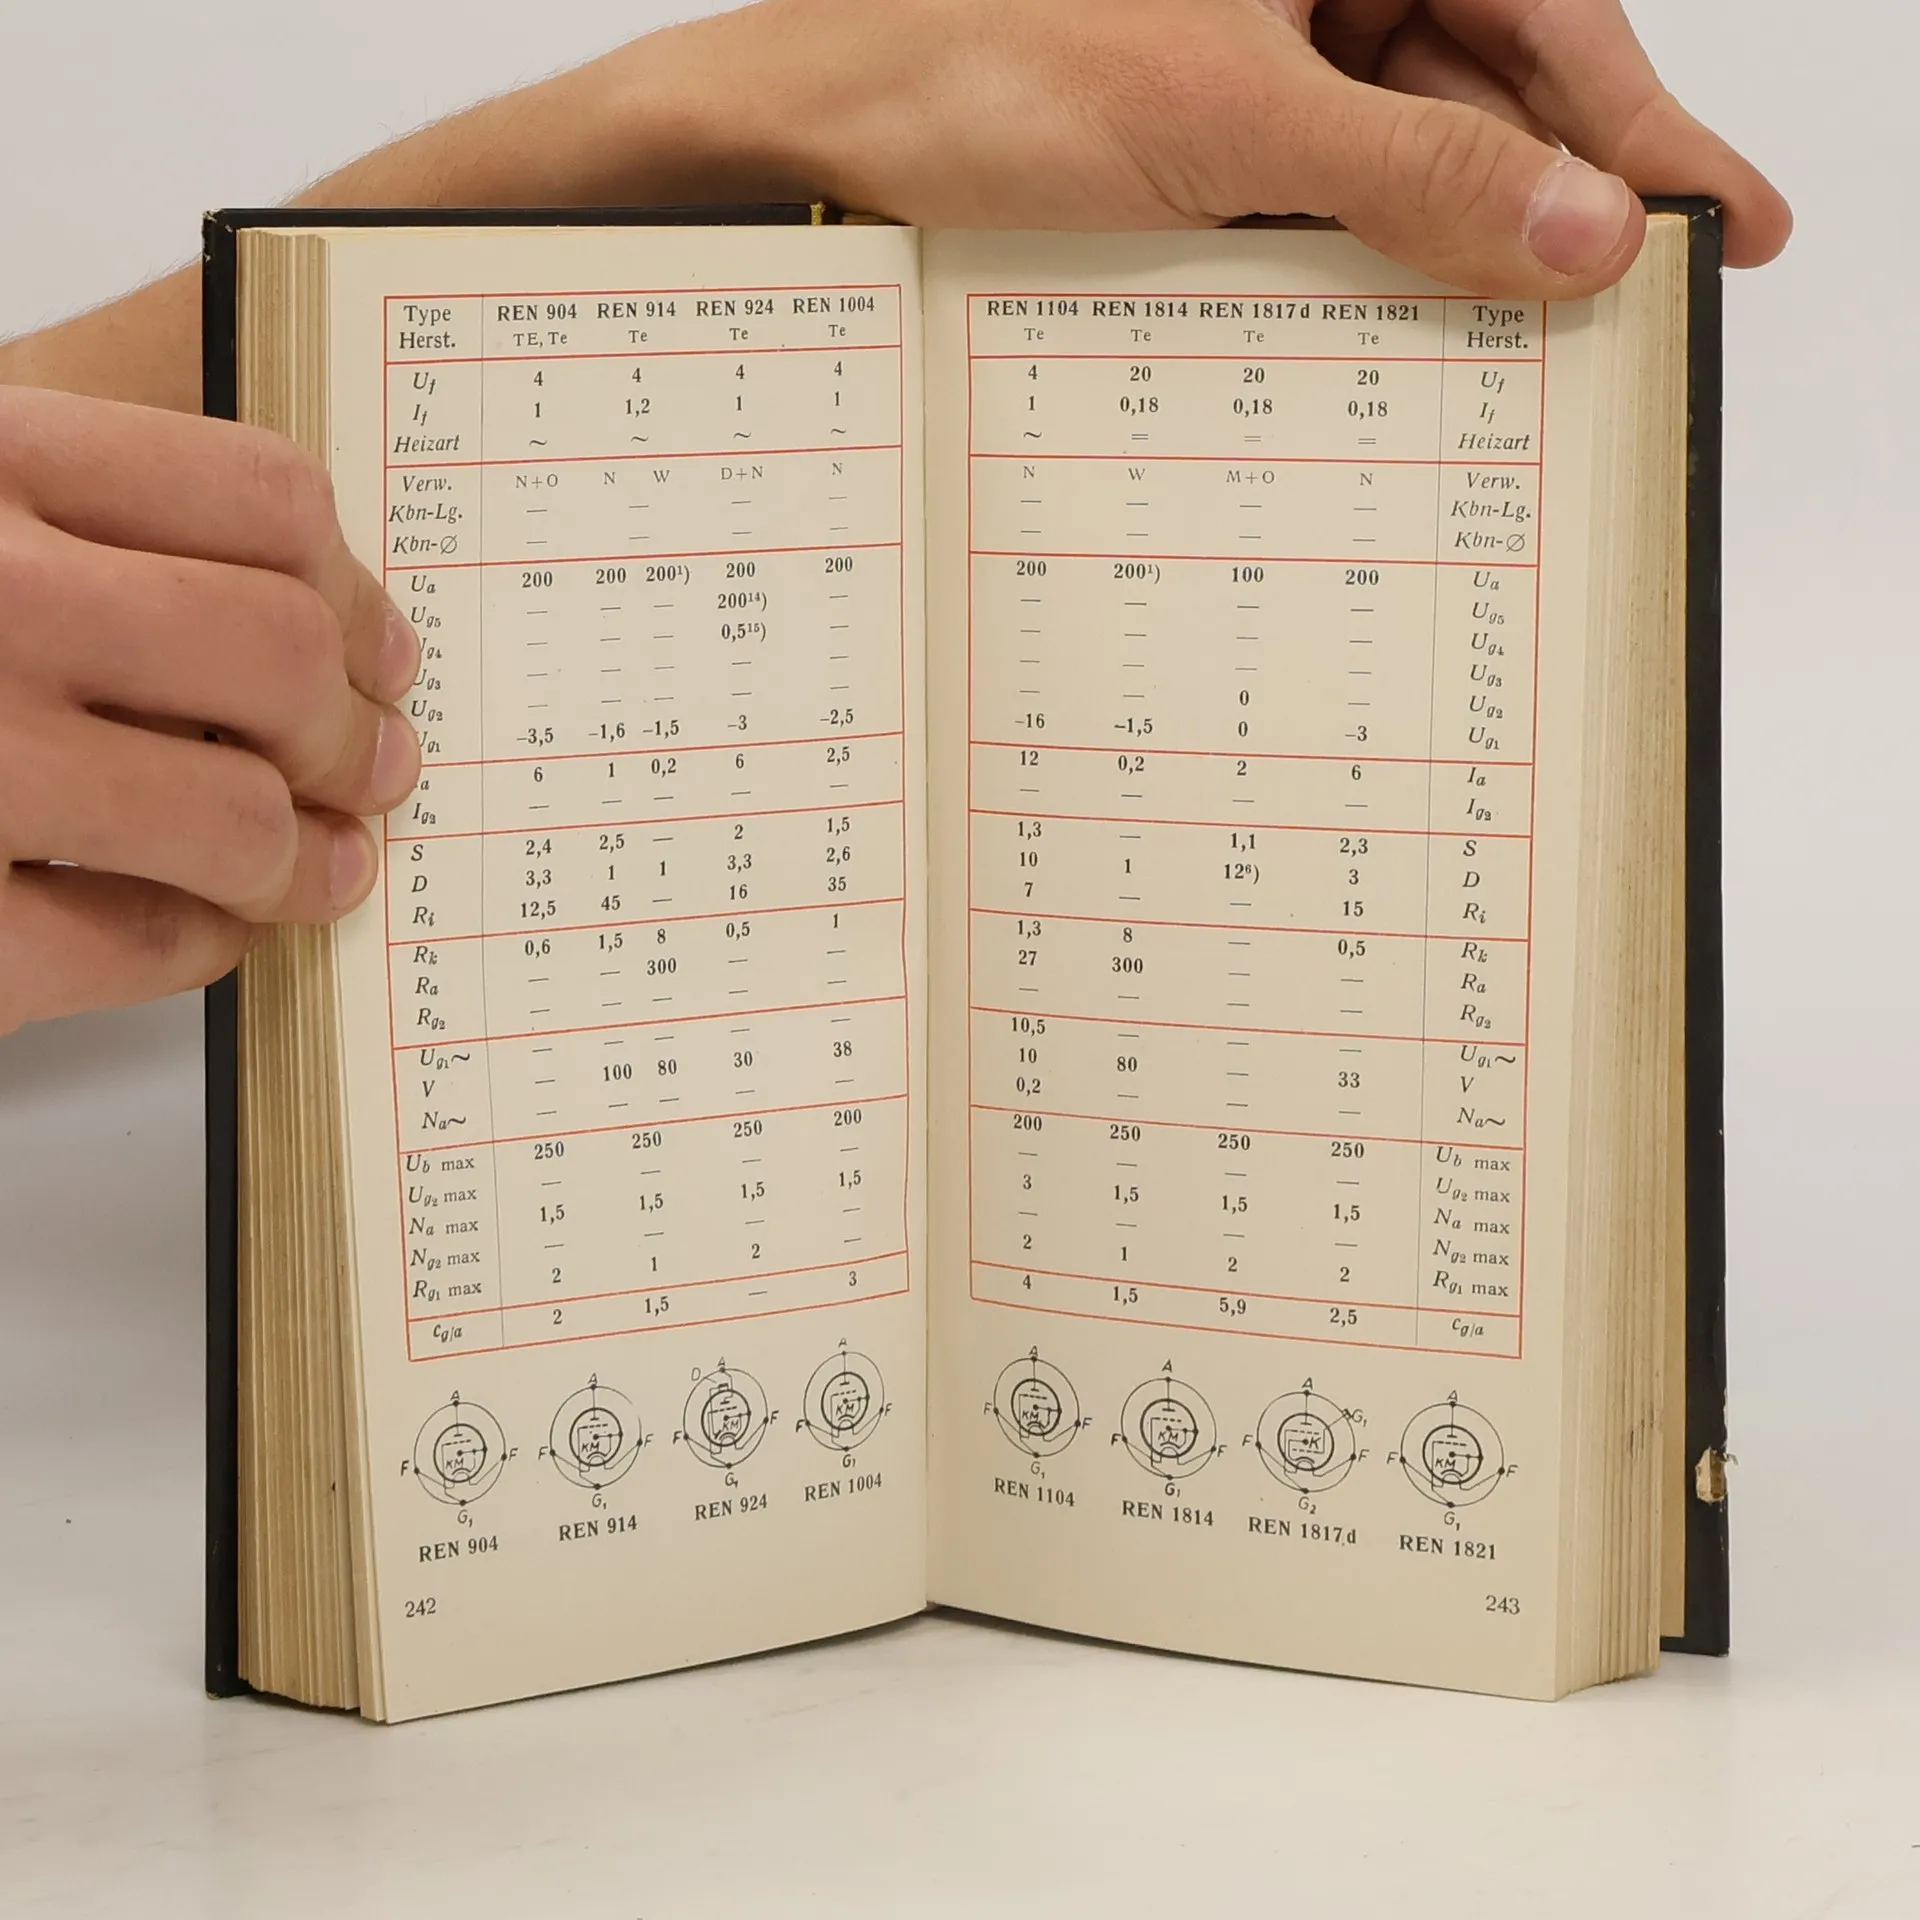 Type REN 904 REN 914 REN 924 REN 1004
Herst. TE, Te Te Te Te
Uf 4 4 4 4
If 1 1,2 1 1
Heizart ~ ~ ~ ~
Verw. N+O N W D+N N
Kbn-Lg. — — — —
Kbn-Ø — — — —
Ua 200 200 200¹) 200 200
Ug5 — — — 200¹⁴) —
Ug4 — — — 0,5¹⁵) —
Ug3 — — — — —
Ug2 — — — — —
Ug1 –3,5 –1,6 –1,5 –3 –2,5
a 6 1 0,2 6 2,5
Ig2 — — — — —
S 2,4 2,5 — 2 1,5
D 3,3 1 1 3,3 2,6
Ri 12,5 45 — 16 35
Rk 0,6 1,5 8 0,5 1
Ra — — 300 — —
Rg2 — — — — —
Ug1~ — — — — —
V — 100 80 30 38
Na~ — — — — —
Ub max 250 250 250 200
Ug2 max — — — —
Na max 1,5 1,5 1,5 1,5
Ng2 max — — — —
Rg1 max 2 1 2 3
cg/a 2 1,5 — 3
A A D A A
KM KM KM KM
F F F F F F F F
G1 G1 G1 G1
REN 904 REN 914 REN 924 REN 1004
242
REN 1104 REN 1814 REN 1817d REN 1821 Type
Te Te Te Te Herst.
4 20 20 20 Uf
1 0,18 0,18 0,18 If
~ = = = Heizart
N W M+O N Verw.
— — — — Kbn-Lg.
— — — — Kbn-Ø
200 200¹) 100 200 Ua
— — — — Ug5
— — — — Ug4
— — — — Ug3
— — 0 — Ug2
–16 –1,5 0 –3 Ug1
12 0,2 2 6 Ia
— — — — Ig2
1,3 — 1,1 2,3 S
10 1 12⁶) 3 D
7 — — 15 Ri
1,3 8 — 0,5 Rk
27 300 — — Ra
— — — — Rg2
10,5 — — — Ug1~
10 80 — 33 V
0,2 — — — Na~
200 250 250 250 Ub max
— — — — Ug2 max
3 1,5 1,5 1,5 Na max
— — — — Ng2 max
2 1 2 2 Rg1 max
4 1,5 5,9 2,5 cg/a
A A A G1 A
KM KM K KM
F F F F F F F F
G1 G1 G2 G1
REN 1104 REN 1814 REN 1817d REN 1821
243